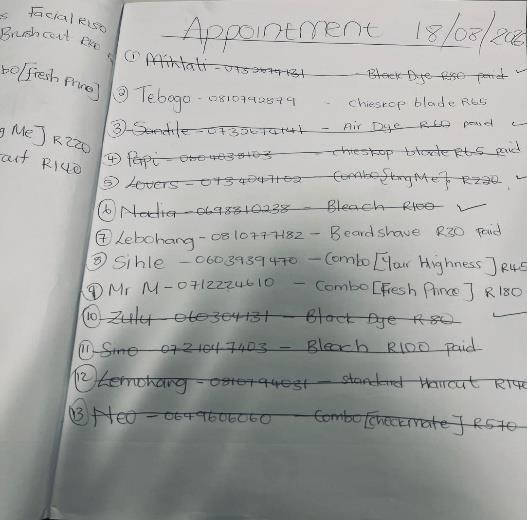 s Facial R150
Brush cut R40
bo [Fresh Prince]
g Me] R220
cart R140
Appointment 18/08/202
① Mihlali - 0732674131 - Black Dye R80 paid ✓
② Tebogo - 0810792879 - chieskop blade R65
③ Sandile - 0735674141 - Air Dye R60 paid ✓
④ Papi - 0604035103 - chieskop blade R65 paid
⑤ Lovers - 0734047102 Combo [King Me] R220 ✓
⑥ Nadia - 0698810238 - Bleach R100 ✓
⑦ Lebohang - 0810777182 - Beardshave R30 paid
⑧ Sihle - 0603939470 - Combo [Your Highness] R45
⑨ Mr M - 0712224610 - Combo [Fresh Prince] R180
⑩ Zulu - 060304131 - Black Dye R80 ✓
⑪ Sino 0721047403 - Bleach R100 paid
⑫ Lemohang - 0810794031 - standard Haircut R140
⑬ Neo - 0649606060 - Combo [checkmate] R570